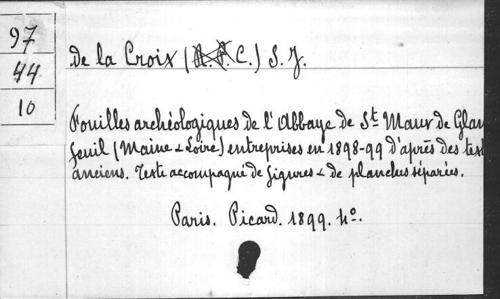 97
44
10
De la Croix (R. P. C.) S. J.
Fouilles archéologiques de l'Abbaye de St Maur de Glan
feuil (Maine & Loire) entreprises en 1898-99 d'après des text
anciens. Texte accompagné de figures & de planches séparées.
Paris. Picard. 1899. 4º.